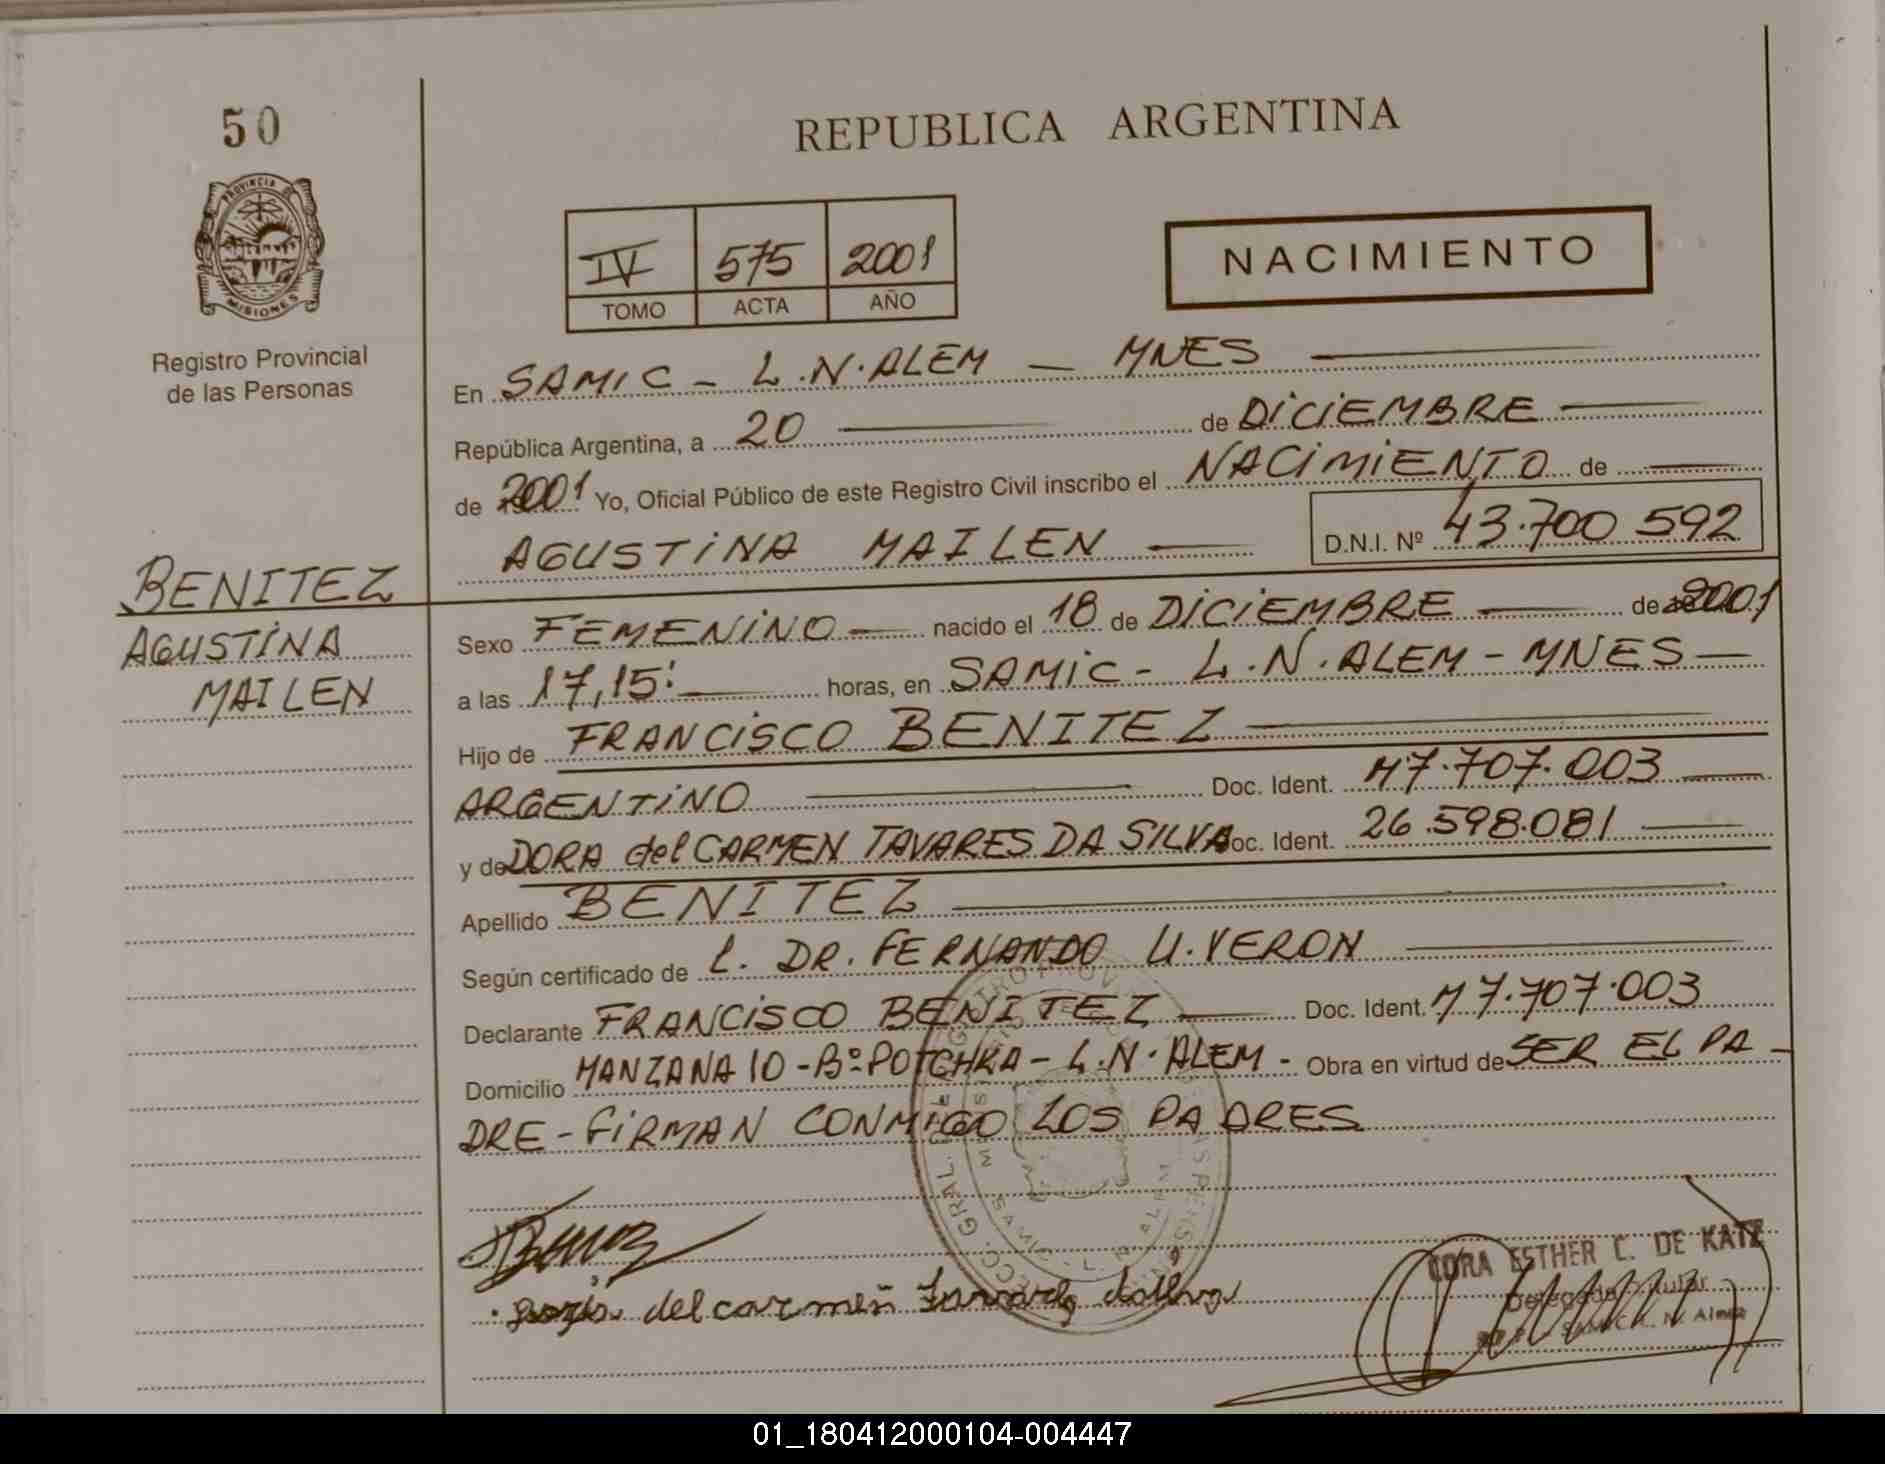 50
REPUBLICA ARGENTINA
PROVINCIA DE
MISIONES
Registro Provincial
de las Personas
IV 575 2001
TOMO ACTA AÑO
NACIMIENTO
En SAMIC - L.N.ALEM - MNES
República Argentina, a 20 de DICIEMBRE
de 2001 Yo, Oficial Público de este Registro Civil inscribo el NACIMIENTO de
AGUSTINA MAILEN D.N.I. Nº 43.700 592
BENITEZ
AGUSTINA
MAILEN
Sexo FEMENINO nacido el 18 de DICIEMBRE de 2001
a las 17,15' horas, en SAMIC - L.N.ALEM - MNES
Hijo de FRANCISCO BENITEZ
ARGENTINO Doc. Ident. M7.707.003
y de DORA del CARMEN TAVARES DA SILVA Doc. Ident. 26.598.081
Apellido BENITEZ
Según certificado de L. DR. FERNANDO U. VERON
Declarante FRANCISCO BENITEZ Doc. Ident. M7.707.003
Domicilio MANZANA 10 - Bº POTCHKA - L.N. ALEM - Obra en virtud de SER EL PA-
DRE - FIRMAN CONMIGO LOS PADRES
del carmen
CORA ESTHER C. DE KATZ
Delegada Titular
01_180412000104-004447